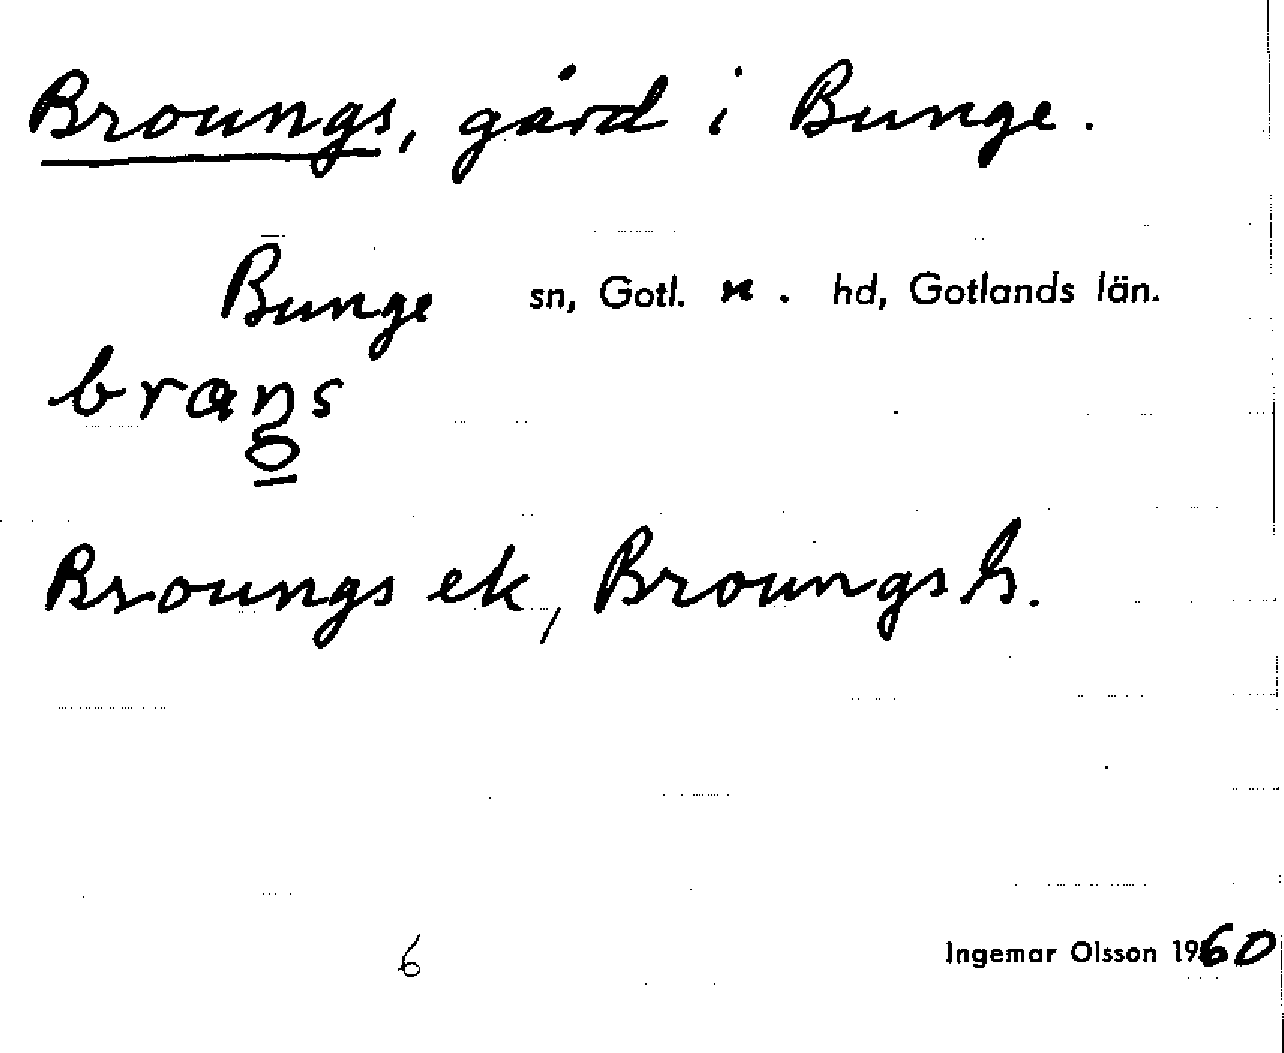 Broungs, gård i Bunge.
Bunge sn, Gotl. n. hd, Gotlands län.
Broungs ek, Broungs h.
6
Ingemar Olsson 1960